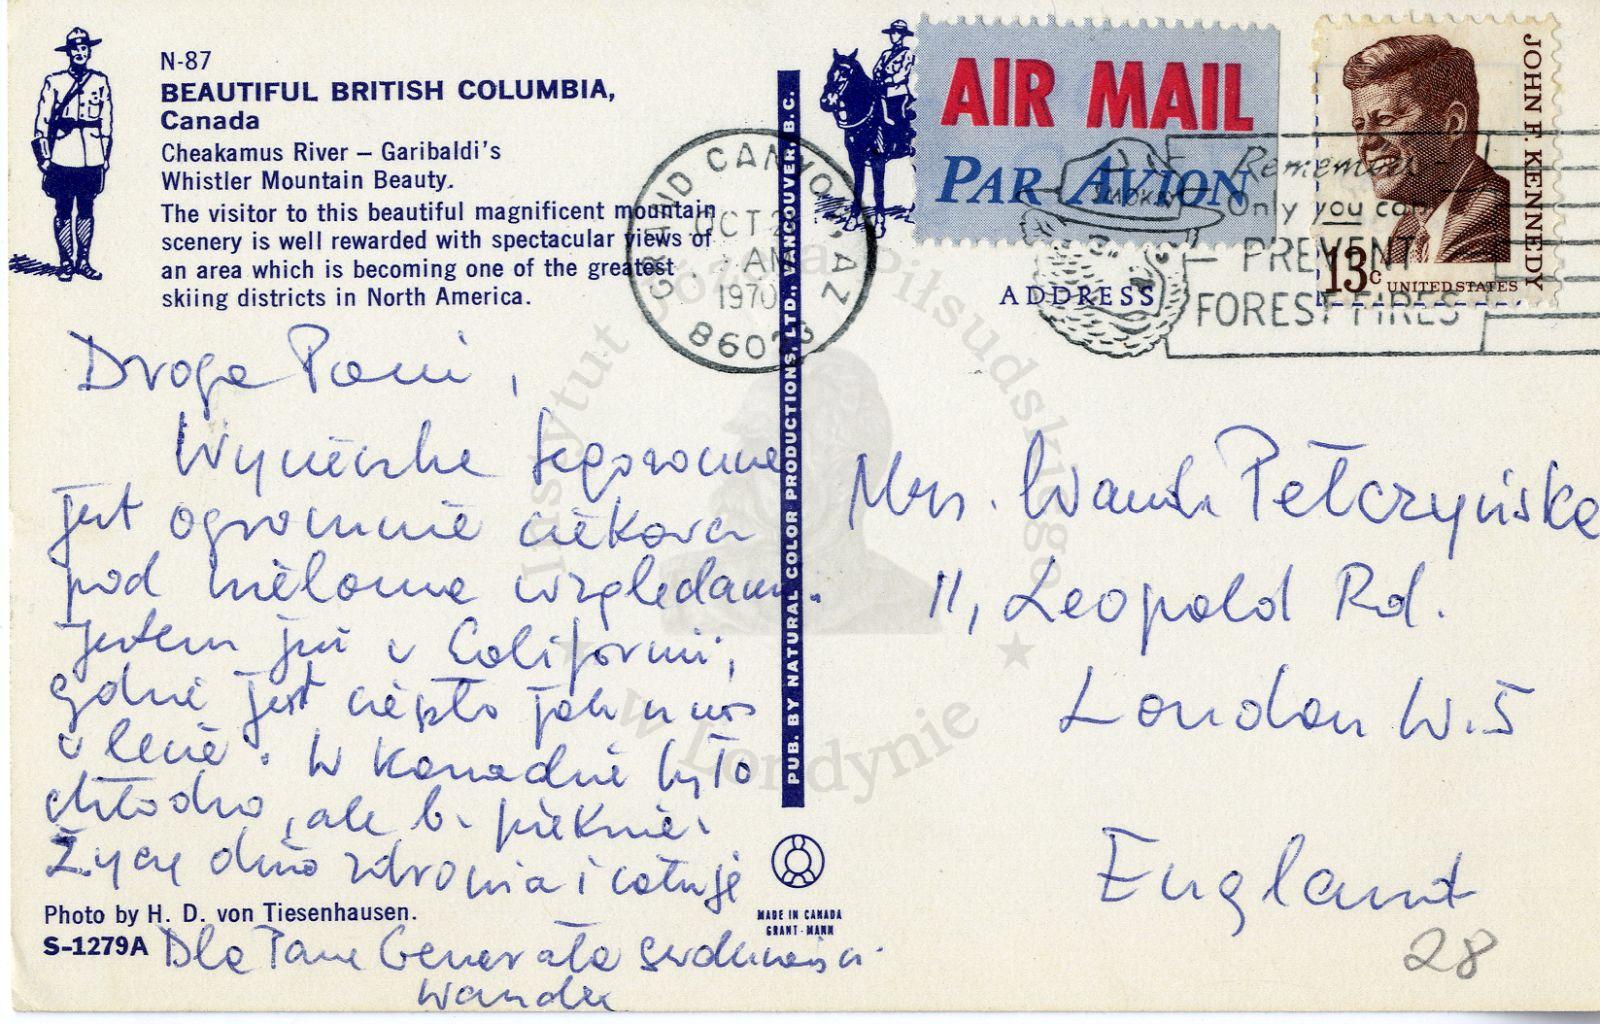 N-87
BEAUTIFUL BRITISH COLUMBIA,
Canada
Cheakamus River – Garibaldi's
Whistler Mountain Beauty.
The visitor to this beautiful magnificent mountain
scenery is well rewarded with spectacular views of
an area which is becoming one of the greatest
skiing districts in North America.
Droga Pani,
Wycieczka tegoroczna
jest ogromnie ciekawa
pod wieloma względami.
Jestem już w Californii,
gdzie jest ciepło jak u nas
w lecie. W Kanadzie było
chłodno, ale b. pięknie.
Życzę dużo zdrowia i całuję
Photo by H. D. von Tiesenhausen.
S-1279A
Dla Pana Generała serdeczności
Wanda
PUB. BY NATURAL COLOR PRODUCTIONS, LTD., VANCOUVER, B.C.
MADE IN CANADA
GRANT-MANN
GRAND CANYON, AZ
OCT 2
AM
1970
86023
AIR MAIL
PAR AVION
SMOKEY
Remember –
Only you can
PREVENT
FOREST FIRES
JOHN F. KENNEDY
13c UNITED STATES
ADDRESS
Mrs. Wanda Pełczyńska
11, Leopold Rd.
London W.5
England
28
Instytut Józefa Piłsudskiego
w Londynie